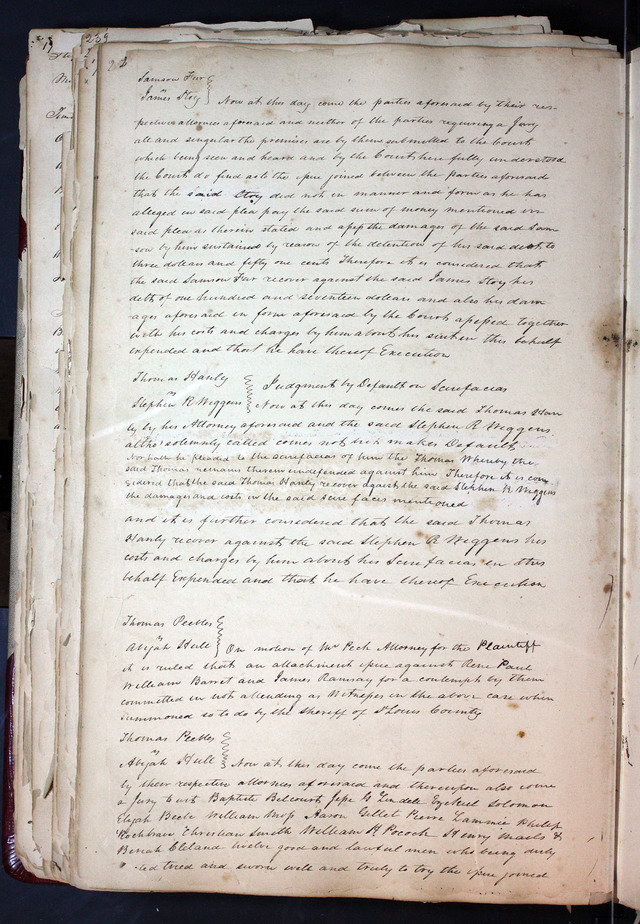 239
212
Samson Fur
vs
James Stoy } Now at this day come the parties aforesaid by their res-
pective attornies aforesaid and neither of the parties requiring a Jury
all and singular the premises are by them submitted to the Court
which being seen and heard and by the Court here fully understood
the Court do find as to the ipue joined between the parties aforesaid
that the said Stoy did not in manner and form as he has
alleged in said plea pay the said sum of money mentioned in
said plea as therein stated and apep the damages of the said Sam
son by him sustained by reason of the detention of his said debt to
three dollars and fifty one cents Therefore it is considered that
the said Samson Fur recover against the said James Stoy his
debt of one hundred and seventeen dollars and also his dam
ages aforesaid in form aforesaid by the Court apeped together
with his costs and charges by him about his suit in this behalf
expended and that he have thereof Execution
Thomas Hanly
vs
Stephen R Wiggens } Judgment by Default on Scirefacias
Now at this day comes the said Thomas Han
ly by his Attorney aforesaid and the said Stephen R Wiggens
altho solemnly called comes not but makes Default
Nor hath he pleaded to the scirefacias of him the Thomas Whereby the
said Thomas remains therein undefended against him Therefore it is con
sidered that the said Thomas Hanly recover against the said Stephen R Wiggens
the damages and costs in the said scire facias mentioned
and it is further considered that the said Thomas
Hanly recover against the said Stephen R Wiggens his
costs and charges by him about his Scirefacias in this
behalf Expended and that he have thereof Execution
Thomas Peebles
vs
Abijah Hull } On motion of Mr Peck Attorney for the Plaintiff
it is ruled that an attachment ipue against Rene Paul
William Barret and James Ramsay for a contempt by them
committed in not attending as Witnepes in the above case when
summoned so to do by the Sheriff of St Louis County
Thomas Peebles
vs
Abijah Hull } Now at this day come the parties aforesaid
by their respective attornies aforesaid and thereupon also come
a Jury towit Baptiste Belcourt Jepe G Lindele Ezekiel Solomon
Elijah Beebe William Mop Aaron Gillet Pierre Lammie Philip
Rochblave Christian Smith William R Pocock Henry &
Beriah Cleland twelve good and lawful men who being duly
tried and sworn well and truly to try the ipue joined